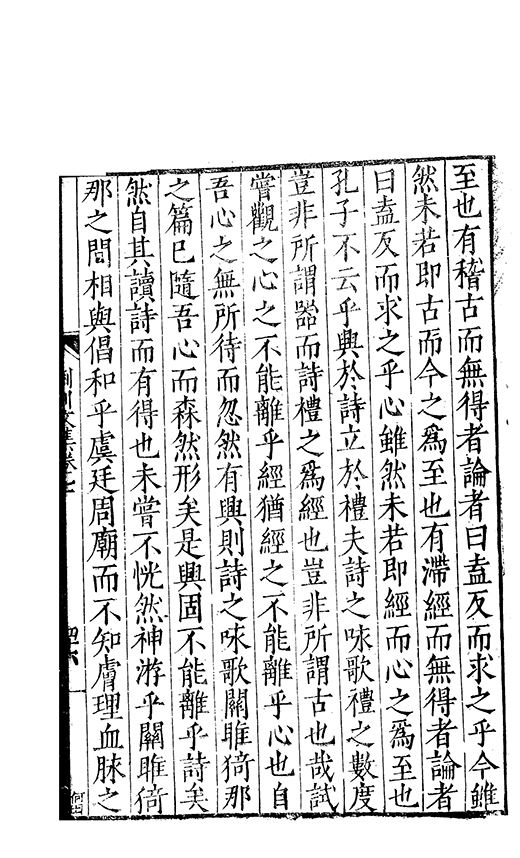 至也有稽古而無得者論者曰盍反而求之乎今雖
然未若即古而今之爲至也有滯經而無得者論者
曰盍反而求之乎心雖然未若即經而心之爲至也
孔子不云乎興於詩立於禮夫詩之咏歌禮之數度
豈非所謂器而詩禮之爲經也豈非所謂古也哉試
嘗觀之心之不能離乎經猶經之不能離乎心也自
吾心之無所待而忽然有興則詩之咏歌關雎猗那
之篇已隨吾心而森然形矣是興固不能離乎詩矣
然自其讀詩而有得也未嘗不恍然神游乎關雎猗
那之間相與倡和乎虞廷周廟而不知膚理血脉之
荊川文集卷之